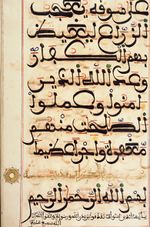 على سوقه يعجب
الزراع ليغيظ
بهم الكفار
وعد الله الذين
ءامنوا وعملوا
الصلحت منهم
مغفرة وأجرا عظيما
بسم الله الرحمن الرحيم